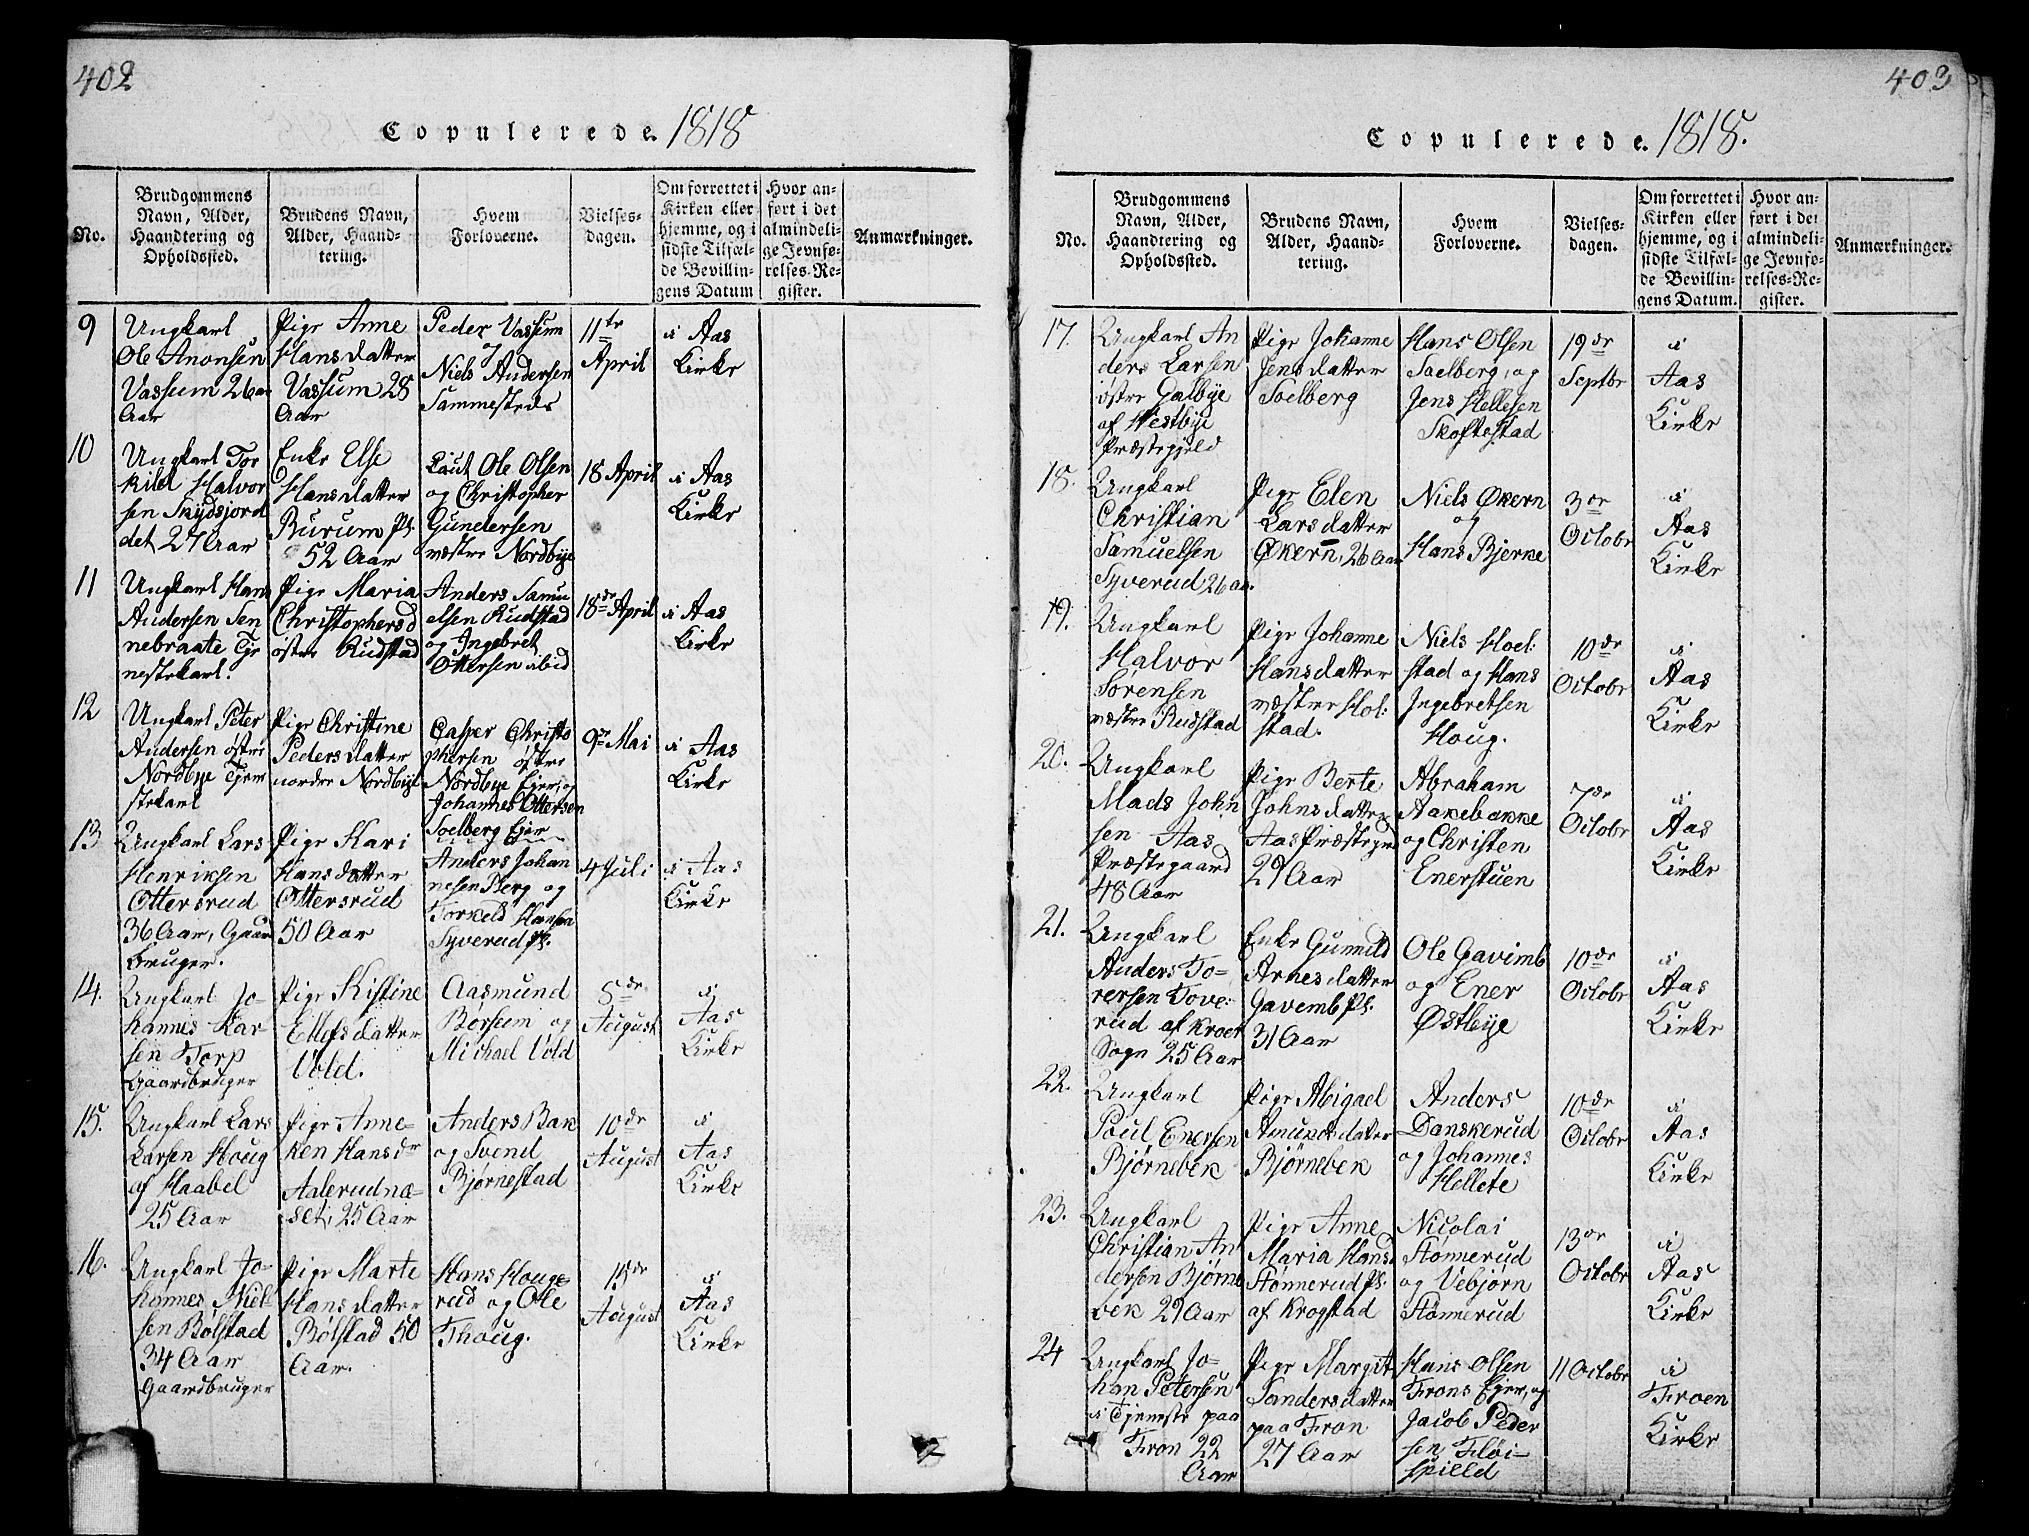 402
Copulerede. 1818
No.
Brudgommens
Navn, Alder,
Haandtering og
Opholdssted.
Brudens Navn,
Alder, Haand-
tering.
Hvem
Forloverne.
Vielses-
dagen.
Om forrettet i
Kirken eller
hjemme, og i
sidste Tilfæl-
de Bevillin-
gens Datum
Hvor an-
ført i det
almindeli-
ge Jevnfø-
relses-Re-
gister.
Anmærkninger.
9
Ungkarl
Ole Anonsen
Vassum 26 aa
Aar
Pige Anne
Hansdatter
Vassum 28
Aar
Peder Vassum
og
Niels Andersen
Sammesteds
11te
April
i Aas
Kirke
10
Ungkarl Tor
kild Halvor
sen Skydsjord
det 27 Aar
Enke Else
Hansdatter
Burum Pl.
52 Aar
Laut Ole Olsen
og Christopher
Gundersen
væstre Nordbye
18 April
i Aas
Kirke
11
Ungkarl Hans
Andersen Sen
nebraate Tje
nestekarl.
Pige Maria
Christophersd
østre Rudstad
Anders Samu
elsen Rudstad
og Ingebret
Ottersen ibid
18de April
i Aas
Kirke
12
Ungkarl Peter
Andersen østre
Nordbye Tjene
stekarl
Pige Christine
Pedersdatter
nordre Nordbye
Casper Christo
phersen østre
Nordbye Ejer, og
Johannes Ottersen
Soelberg Ejer
9de Mai
i Aas
Kirke
13
Ungkarl Lars
Henriksen
Ottersrud
36 Aar, Gaard
bruger.
Pige Kari
Hansdatter
Ottersrud
50 Aar
Anders Johan
nesen Berg og
Torkeld Hansen
Syverud Pl.
4 Juli
i Aas
Kirke
14.
Ungkarl Jo-
hannes Lar
sen Torp
Gaardbruger
Pige Kistine
Ellefsdatter
Vold.
Aasmund
Borsum og
Michael Vold
8de
August
i
Aas
Kirke
15.
Ungkarl Lars
Larsen Houg
af Haabel
25 Aar
Pige Anne-
ken Hansdr
Aalerudnæ-
set, 25 Aar
Anders Bak
og Svend
Bjørnestad
10de
August
i
Aas
Kirke
16.
Ungkarl Jo-
hannes Niel
sen Bølstad
34 Aar
Gaardbruger
Pige Marte
Hansdatter
Bølstad 50
Aar.
Hans Houge-
rud og Ole
Thoug.
15de
August
i
Aas
Kirke
403
Copulerede. 1818.
No.
Brudgommens
Navn, Alder,
Haandtering og
Opholdssted.
Brudens Navn,
Alder, Haand-
tering.
Hvem
Forloverne.
Vielses-
dagen.
Om forrettet i
Kirken eller
hjemme, og i
sidste Tilfæl-
de Bevillin-
gens Datum.
Hvor an-
ført i det
almindeli-
ge Jevnfø-
relses-Re-
gister.
Anmærkninger.
17.
Ungkarl An
ders Larsen
østre Galbye
af Westbye
Præstegjeld
Pige Johanne
Jensdatter
Soelberg
Hans Olsen
Soelberg, og
Jens Hellesen
Skoftestad
19de
Septbr
i
Aas
Kirke
18.
Ungkarl
Christian
Samuelsen
Syverud 26 aar.
Pige Elen
Larsdatter
Økern, 26 Aar
Niels Økern
og
Hans Bjerke
3de
Octobr
i
Aas
Kirke
19.
Ungkarl
Halvor
Sørensen
væstre Rudstad
Pige Johanne
Hansdatter
væstre Hol-
stad.
Niels Hoel-
stad og Hans
Ingebretsen
Houg.
10de
Octobr
i
Aas
Kirke
20.
Ungkarl
Mads John
sen Aas
Præstegaard
48 Aar
Pige Berte
Johnsdatter
Aas Præstegrd
29 Aar
Abraham
Aakebakke
og Christen
Enerstuen
7de
Octobr
i
Aas
Kirke
21.
Ungkarl
Anders To-
rersen Tove-
rud af Kroer
Sogn 25 Aar
Enke Gunnild
Arnesdatter
Gavemb Pl.
31 Aar
Ole Gavimb
og Ener
Østbye
10de
Octobr
i
Aas
Kirke
22.
Ungkarl
Poul Enersen
Bjørnebek
Pige Abigael
Amundsdatter
Bjørnebek
Anders
Danskerud
og Johannes
Hellete
10de
Octobr
i
Aas
Kirke
23.
Ungkarl
Christian An
dersen Bjørne
bek 29 Aar
Pige Anne
Maria Hansd.
Stønnerud Pl.
af Krogstad
Nicolai
Stønnerud
og Vebjørn
Stønnerud
13de
Octobr
i
Aas
Kirke
24
Ungkarl Jo-
han Petersen
i Tjeneste paa
Fron 22
Aar
Pige Margit
Sandersdatter
paa Fron
27 Aar
Hans Olsen
Frons Ejer, og
Jacob Peder
sen Fløi-
spilld
11 Octobr
i
Froen
Kirke